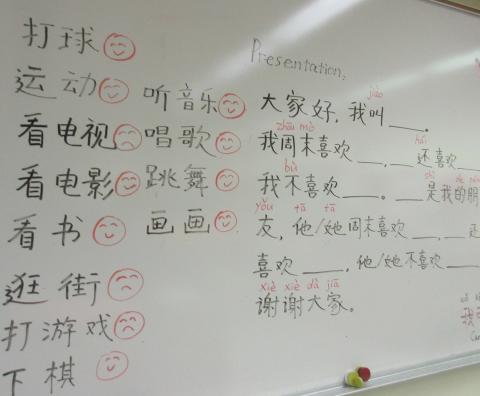 打球
运动
看电视
看电影
看书
逛街
打游戏
下棋
听音乐
唱歌
跳舞
画画
Presentation:
jiào
大家好，我叫____。
zhōu mò hái
我周末喜欢____，____还喜欢____
bù shì de
我不喜欢____。____是我的朋
yǒu tā tā
友，他/她周末喜欢____，还
喜欢____，他/她不喜欢____
xiè xiè dà jiā
谢谢大家。